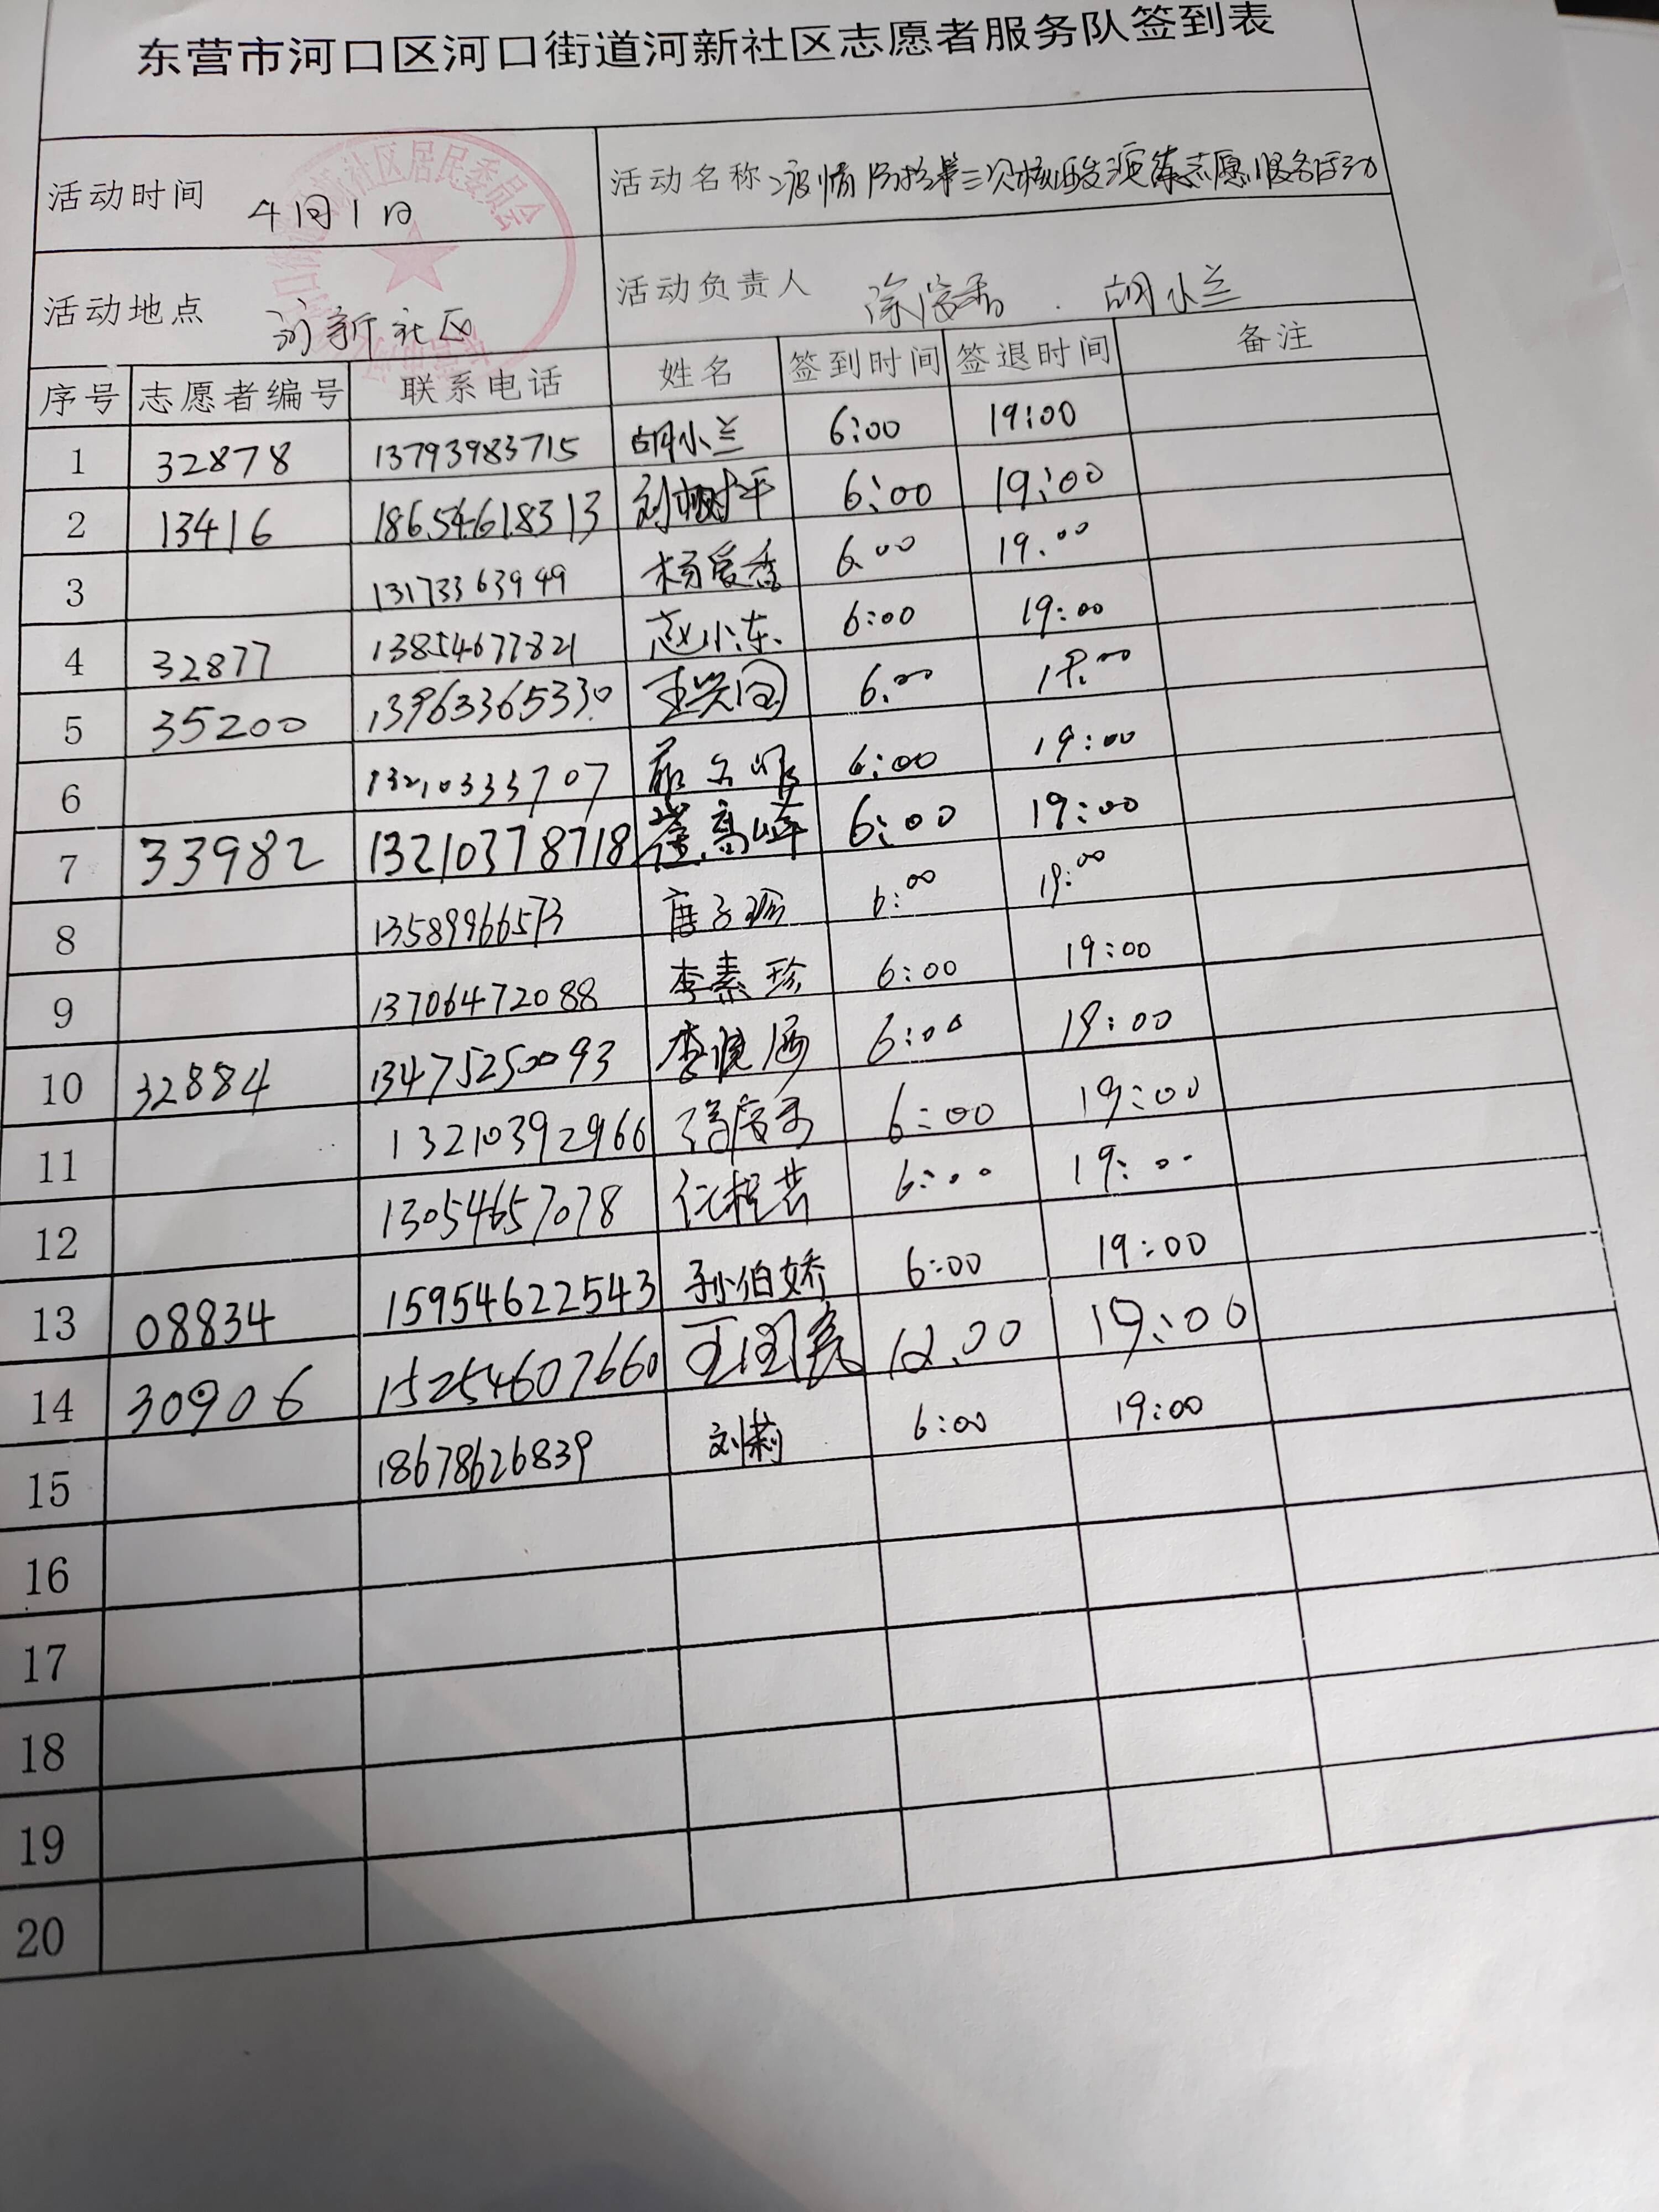 东营市河口区河口街道河新社区志愿者服务队签到表
活动时间 4月1日 活动名称 疫情防控第三次核酸演练志愿服务活动
活动地点 河新社区 活动负责人 胡小兰
序号 志愿者编号 联系电话 姓名 签到时间 签退时间 备注
1 32878 13793983715 胡小兰 6:00 19:00
2 13416 18654618313 刘树平 6:00 19:00
3 13173363949 杨爱香 6:00 19:00
4 32877 13854677821 赵小东 6:00 19:00
5 35200 13963365330 王兴国 6:00 19:00
6 13210333707 6:00 19:00
7 33982 13210378718 崔高峰 6:00 19:00
8 13589966573 6:00 19:00
9 13706472088 李素珍 6:00 19:00
10 32884 13475250093 6:00 19:00
11 13210392966 6:00 19:00
12 13054657078 6:00 19:00
13 08834 15954622543 孙伯娇 6:00 19:00
14 30906 15254607660 12:00 19:00
15 18678626839 刘莉 6:00 19:00
16
17
18
19
20